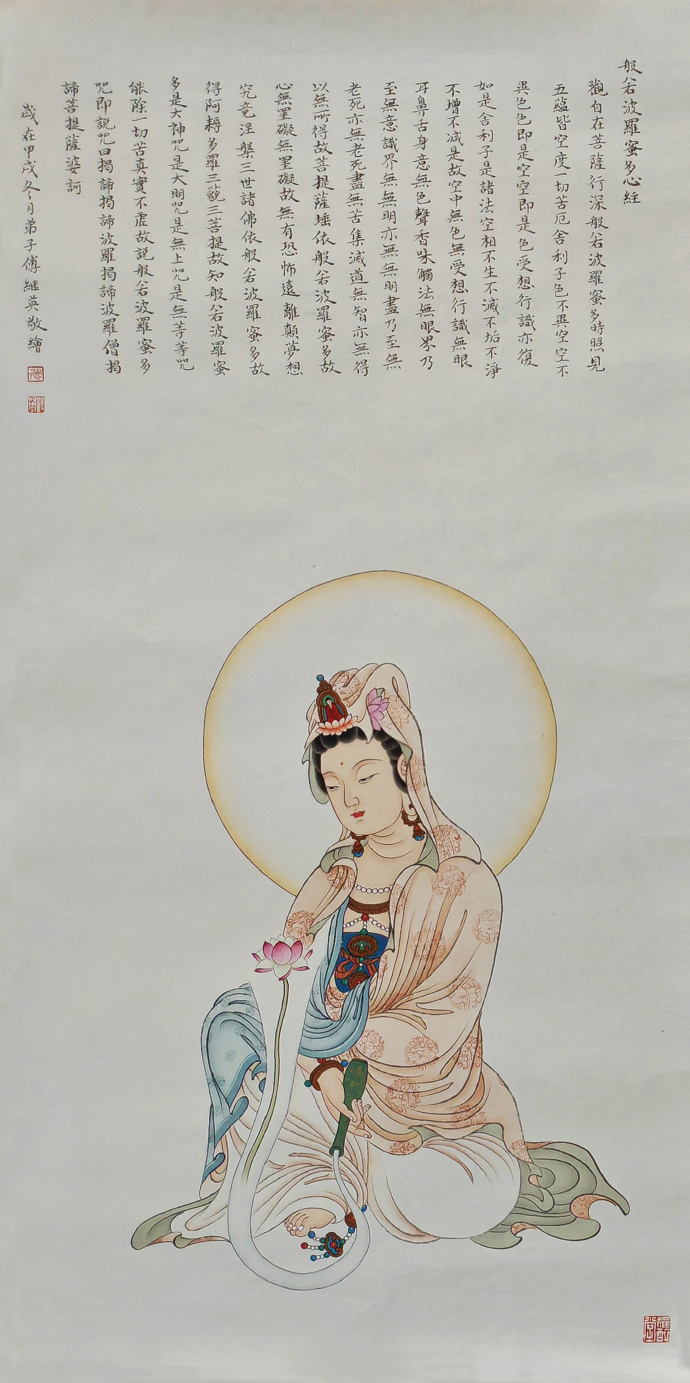 般若波羅蜜多心経
觀自在菩薩行深般若波羅蜜多時照見
五蘊皆空度一切苦厄舍利子色不異空空不
異色色即是空空即是色受想行識亦復
如是舍利子是諸法空相不生不滅不垢不淨
不增不減是故空中無色無受想行識無眼
耳鼻舌身意無色聲香味觸法無眼界乃
至無意識界無無明亦無無明盡乃至無
老死亦無老死盡無苦集滅道無智亦無得
以無所得故菩提薩埵依般若波羅蜜多故
心無罣礙無罣礙故無有恐怖遠離顛夢想
究竟涅槃三世諸佛依般若波羅蜜多故
得阿耨多羅三藐三菩提故知般若波羅蜜
多是大神咒是大明咒是無上咒是無等等咒
能除一切苦真實不虛故説般若波羅蜜多
咒即説咒曰揭諦揭諦波羅揭諦波羅僧揭
諦菩提薩婆訶
歲在甲戌冬月弟子傅繼英敬繪